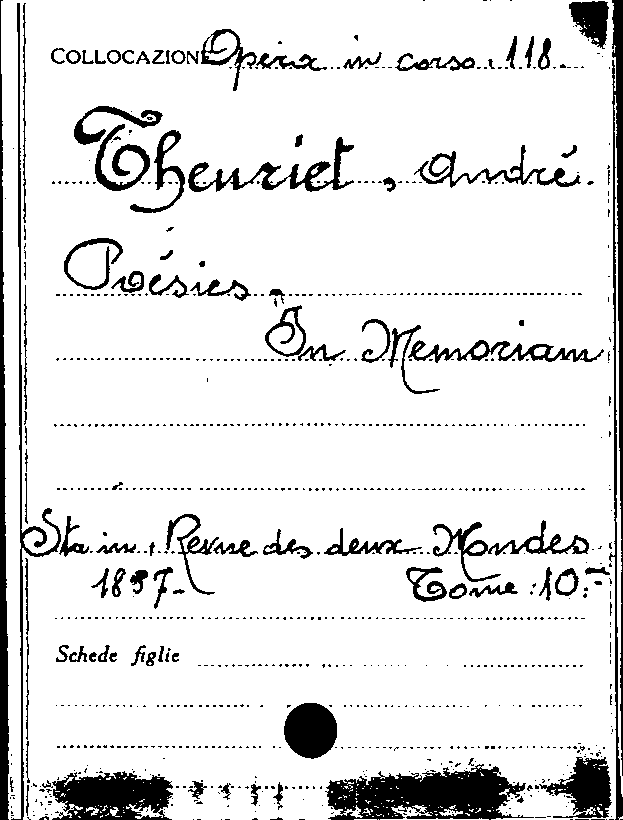 COLLOCAZIONE Opera in corso. 118.
Theuriet, André.
Poésies.
In Memoriam
Sta in, Revue des deux Mondes
1897- Tome: 10:-
Schede figlie